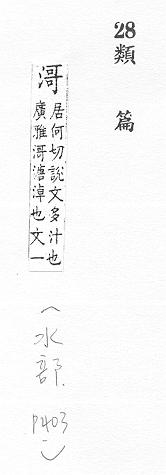 28
類篇
滒 居何切說文多汁也
廣雅滒濇淖也文一
(水部 P403)